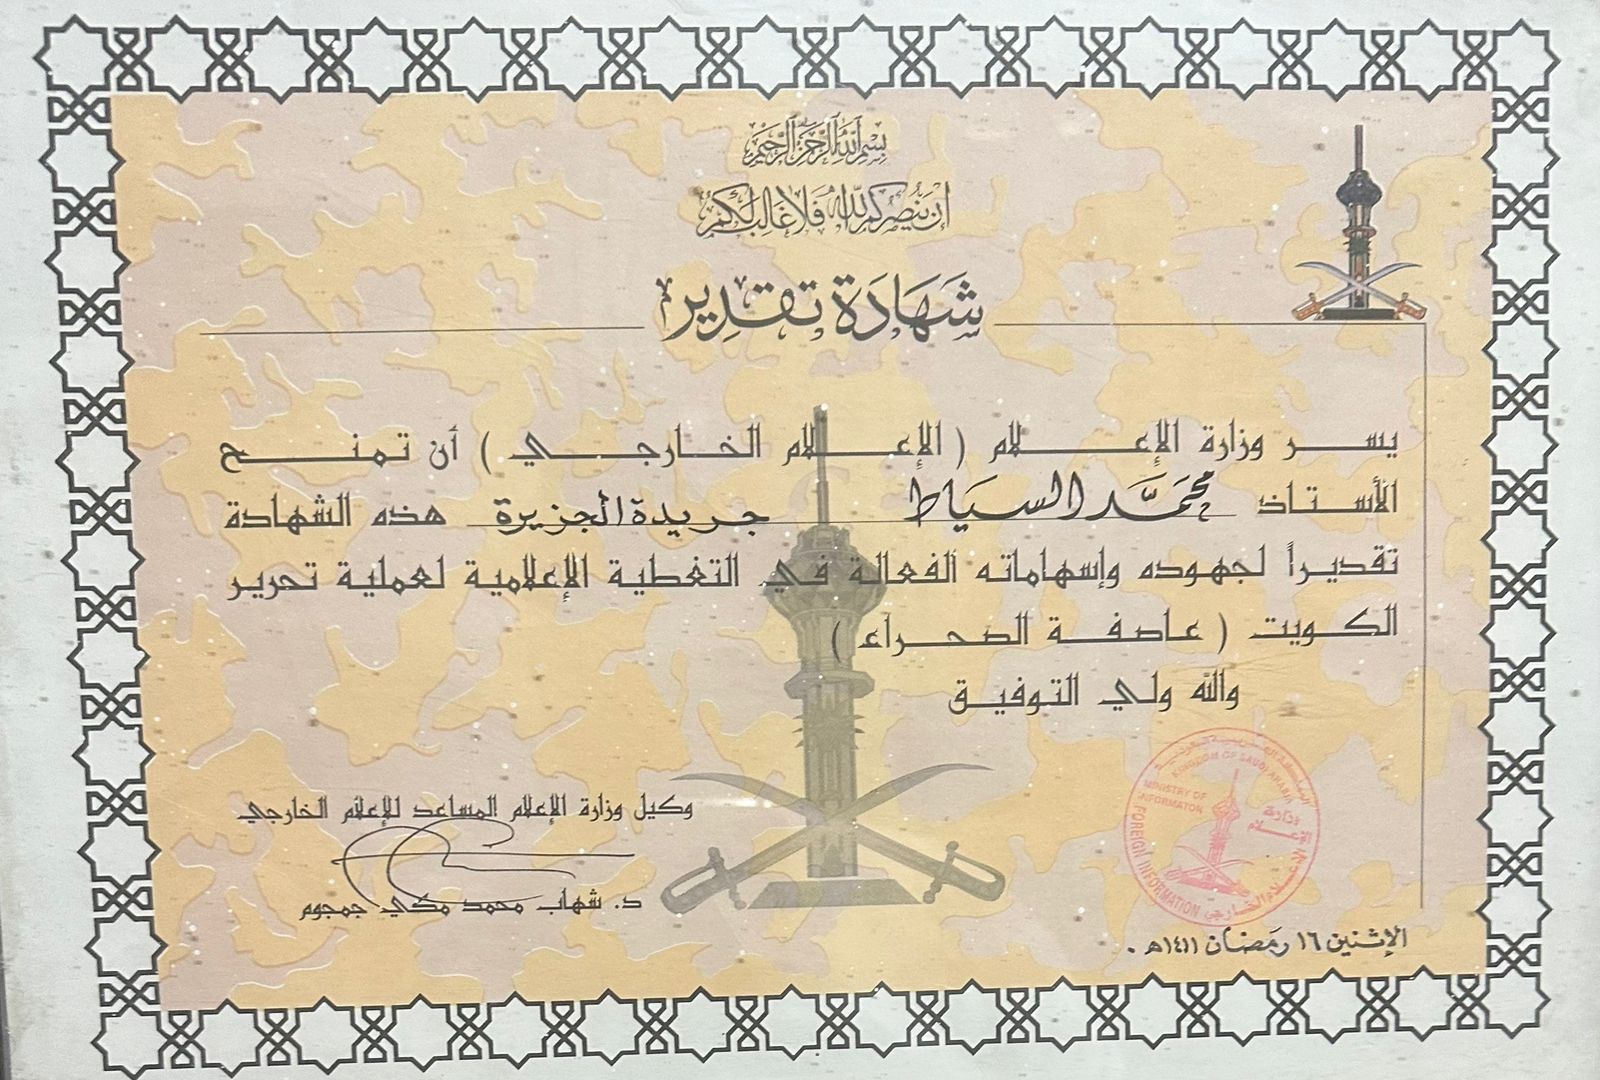 بسم الله الرحمن الرحيم
إن ينصركم الله فلا غالب لكم
شهادة تقدير
يسر وزارة الإعلام ( الإعلام الخارجي ) أن تمنح
الأستاذ محمد السياط جريدة الجزيرة هذه الشهادة
تقديراً لجهوده وإسهاماته الفعالة في التغطية الإعلامية لعملية تحرير
الكويت ( عاصفة الصحراء )
والله ولي التوفيق
المملكة العربية السعودية
KINGDOM OF SAUDI ARABIA
MINISTRY OF
INFORMATON
وزارة
الإعلام
FOREIGN INFORMATION
الإعلام الخارجي
وكيل وزارة الإعلام المساعد للإعلام الخارجي
د. شهاب محمد مكي جمجوم
الإثنين ١٦ رمضان ١٤١١هـ .